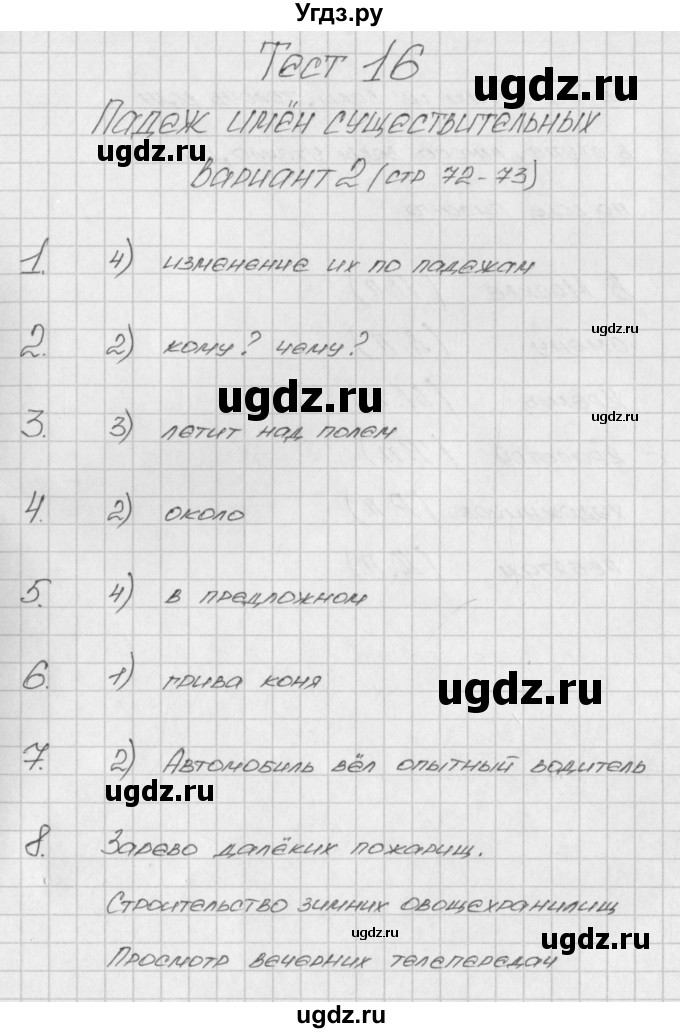 Угдз.ру
Тест 16
Падеж имён существительных
вариант 2 (стр 72-73)
1. 4) изменение их по падежам
2. 2) кому? чему?
3. 3) летит над полем
4. 2) около
5. 4) в предложном
6. 1) грива коня
7. 2) Автомобиль вёл опытный водитель
8. Зарево далёких пожарищ.
Строительство зимних овощехранилищ
Просмотр вечерних телепередач
ugdz.ru
ugdz.ru
ugdz.ru
ugdz.ru
ugdz.ru
ugdz.ru
ugdz.ru
ugdz.ru
ugdz.ru
ugdz.ru
ugdz.ru